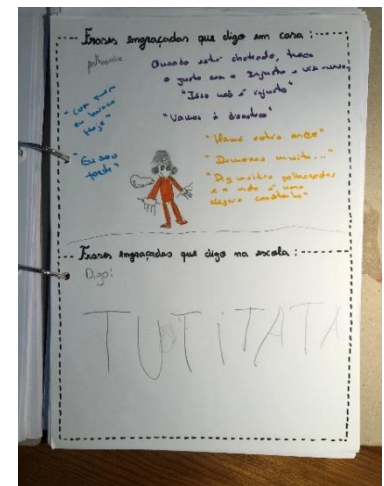 Frases engraçadas que digo em casa :
Quando estou chateado, troca
o justo com o injusto e vice versa
"Isso não é injusto"
"Vamos à
"Com quem
eu
hoje"
"Eu sou
forte"
"Demoras muito..."
"Diz muitas palhaçadas
e a vida é uma
alegria constante"
Frases engraçadas que digo na escola :
Digo:
TUTiTATA